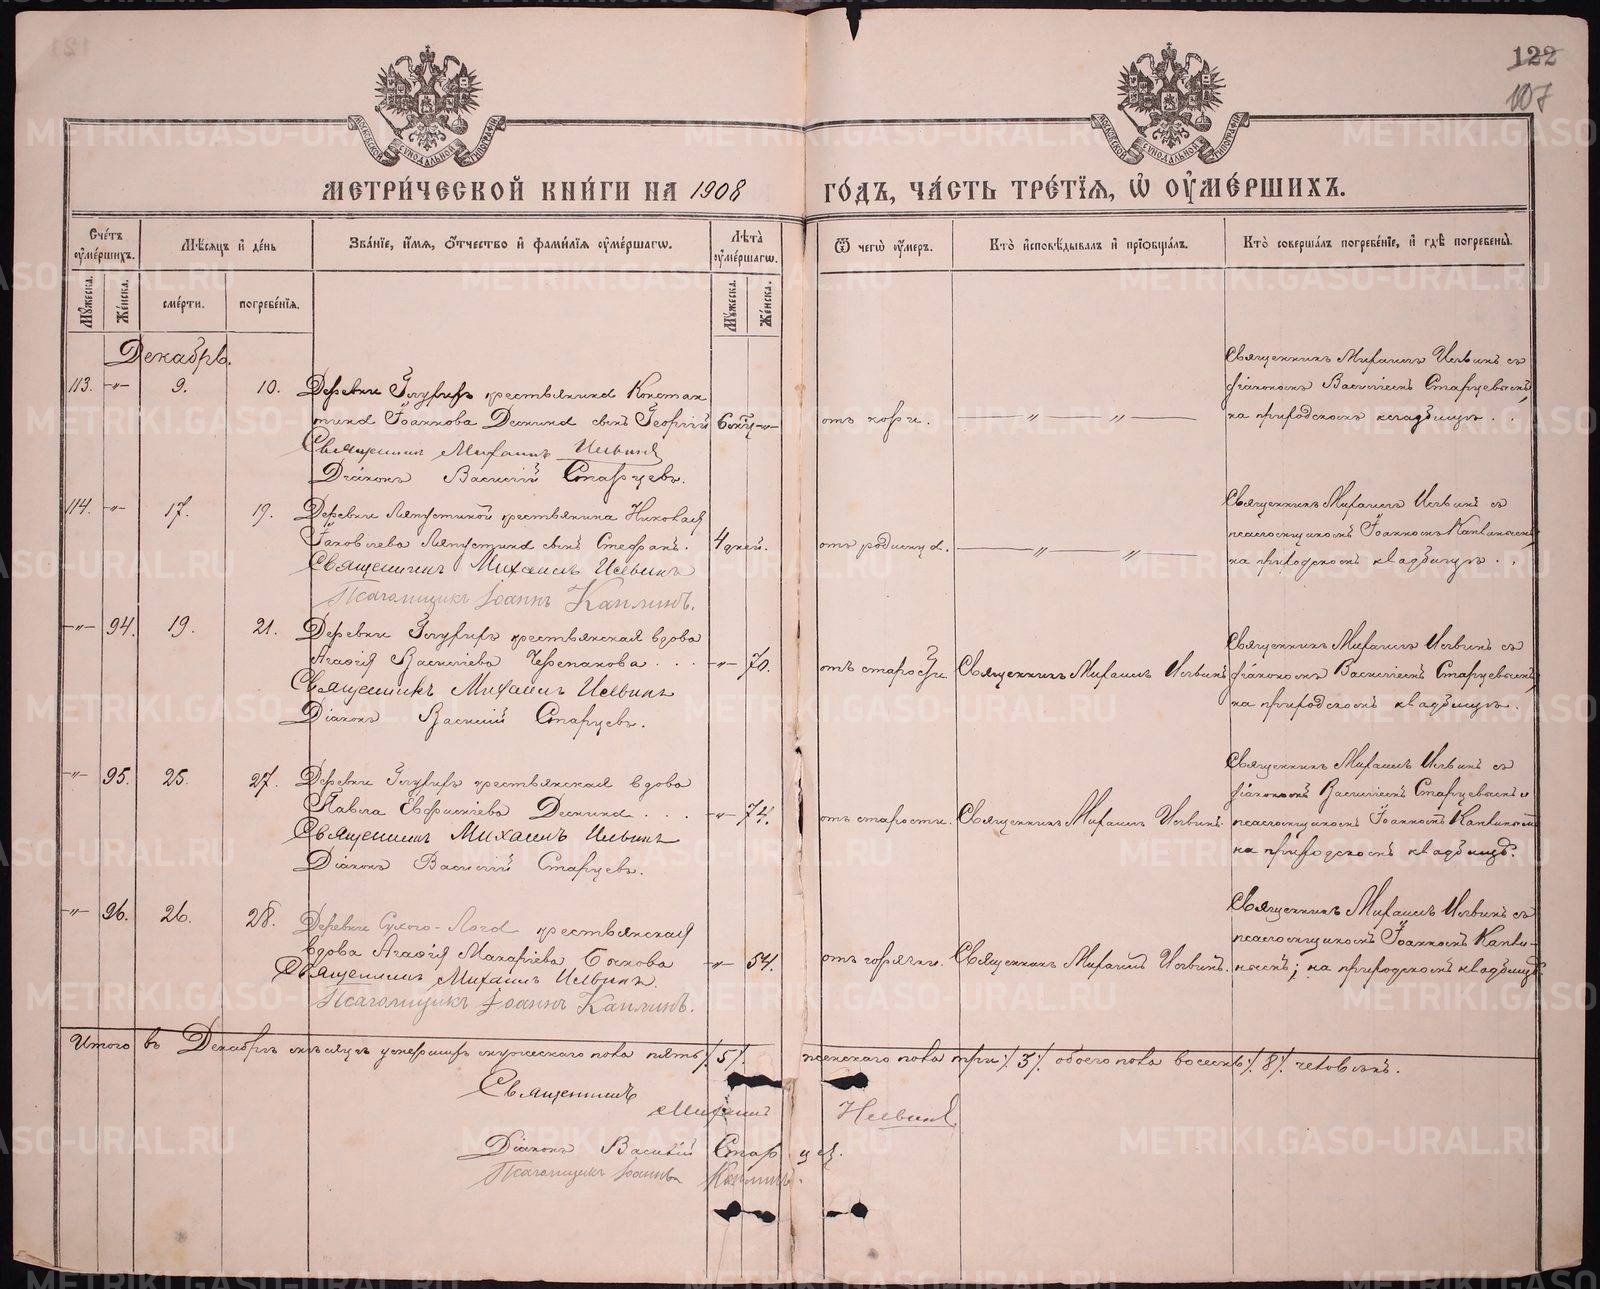 122
107
МЕТРИ́ЧЕСКОЙ КНИ́ГИ НА 1908
ГО́ДЪ, ЧА́СТЬ ТРЕ́ТIѦ, Ѡ҆ ОУ҆МЕ́РШИХЪ.
Сче́тъ оу҆ме́ршихъ.
Мѣ́сяцъ и҆ де́нь
Зва́нїе, и҆́мя, ѻ҆́тчество и҆ фами́лїя оу҆ме́ршагѡ.
Лѣ́та оу҆ме́ршагѡ.
Ѿ чегѡ̀ оу҆́меръ.
Кто̀ и҆сповѣ́дывалъ и҆ прїѡбща́лъ.
Кто̀ соверша́лъ погребе́нїе, и҆ гдѣ̀ погребены̀.
Мꙋ́жеска.
Же́нска.
сме́рти.
погребе́нїя.
Мꙋ́жеска.
Же́нска.
Декабрь.
113. -"- 9. 10. Деревни Глухихъ крестьянина Констан
тина Іоаннова Деснина сынъ Георгій
Священникъ Михаилъ Ильинъ
Діаконъ Василій Старцевъ.
отъ кори. " "
Священникъ Михаилъ Ильинъ съ
діакономъ Василіемъ Старцевымъ,
на приходскомъ кладбищѣ.
114. -"- 17. 19. Деревни Ляпустиной крестьянина Николая
Іаковлева Ляпустина сынъ Стефанъ. 4 дней.
Священникъ Михаилъ Ильинъ
Псаломщикъ Іоаннъ Каплинъ.
отъ родимца. " "
Священникъ Михаилъ Ильинъ съ
псаломщикомъ Іоанномъ Каплинымъ,
на приходскомъ кладбищѣ.
-"- 94. 19. 21. Деревни Глухихъ крестьянская вдова
Агафія Василіева Черепанова . . . -"- 70.
Священникъ Михаилъ Ильинъ
Діаконъ Василій Старцевъ.
отъ старости Священникъ Михаилъ Ильинъ
Священникъ Михаилъ Ильинъ съ
діакономъ Василіемъ Старцевымъ,
на приходскомъ кладбищѣ.
-"- 95. 25. 27. Деревни Глухихъ крестьянская вдова
Павла Деснина . . . -"- 74.
Священникъ Михаилъ Ильинъ
Діаконъ Василій Старцевъ.
отъ старости. Священникъ Михаилъ Ильинъ.
Священникъ Михаилъ Ильинъ съ
діакономъ Василіемъ Старцевымъ и
псаломщикомъ Іоанномъ Каплинымъ
на приходскомъ кладбищѣ.
-"- 96. 26. 28. Деревни Сухого-Лога крестьянская
вдова Агафія Макаріева Быкова -"- 54.
Священникъ Михаилъ Ильинъ.
Псаломщикъ Іоаннъ Каплинъ.
отъ горячки. Священникъ Михаилъ Ильинъ.
Священникъ Михаилъ Ильинъ съ
псаломщикомъ Іоанномъ Капли-
нымъ; на приходскомъ кладбищѣ.
Итого въ Декабрѣ мѣсяцѣ умершихъ мужескаго пола пять /5/. женскаго пола три /3/. обоего пола восемь /8/. человѣкъ.
Священникъ Михаилъ Ильинъ
Діаконъ Василій Старцевъ.
Псаломщикъ Іоаннъ Каплинъ.